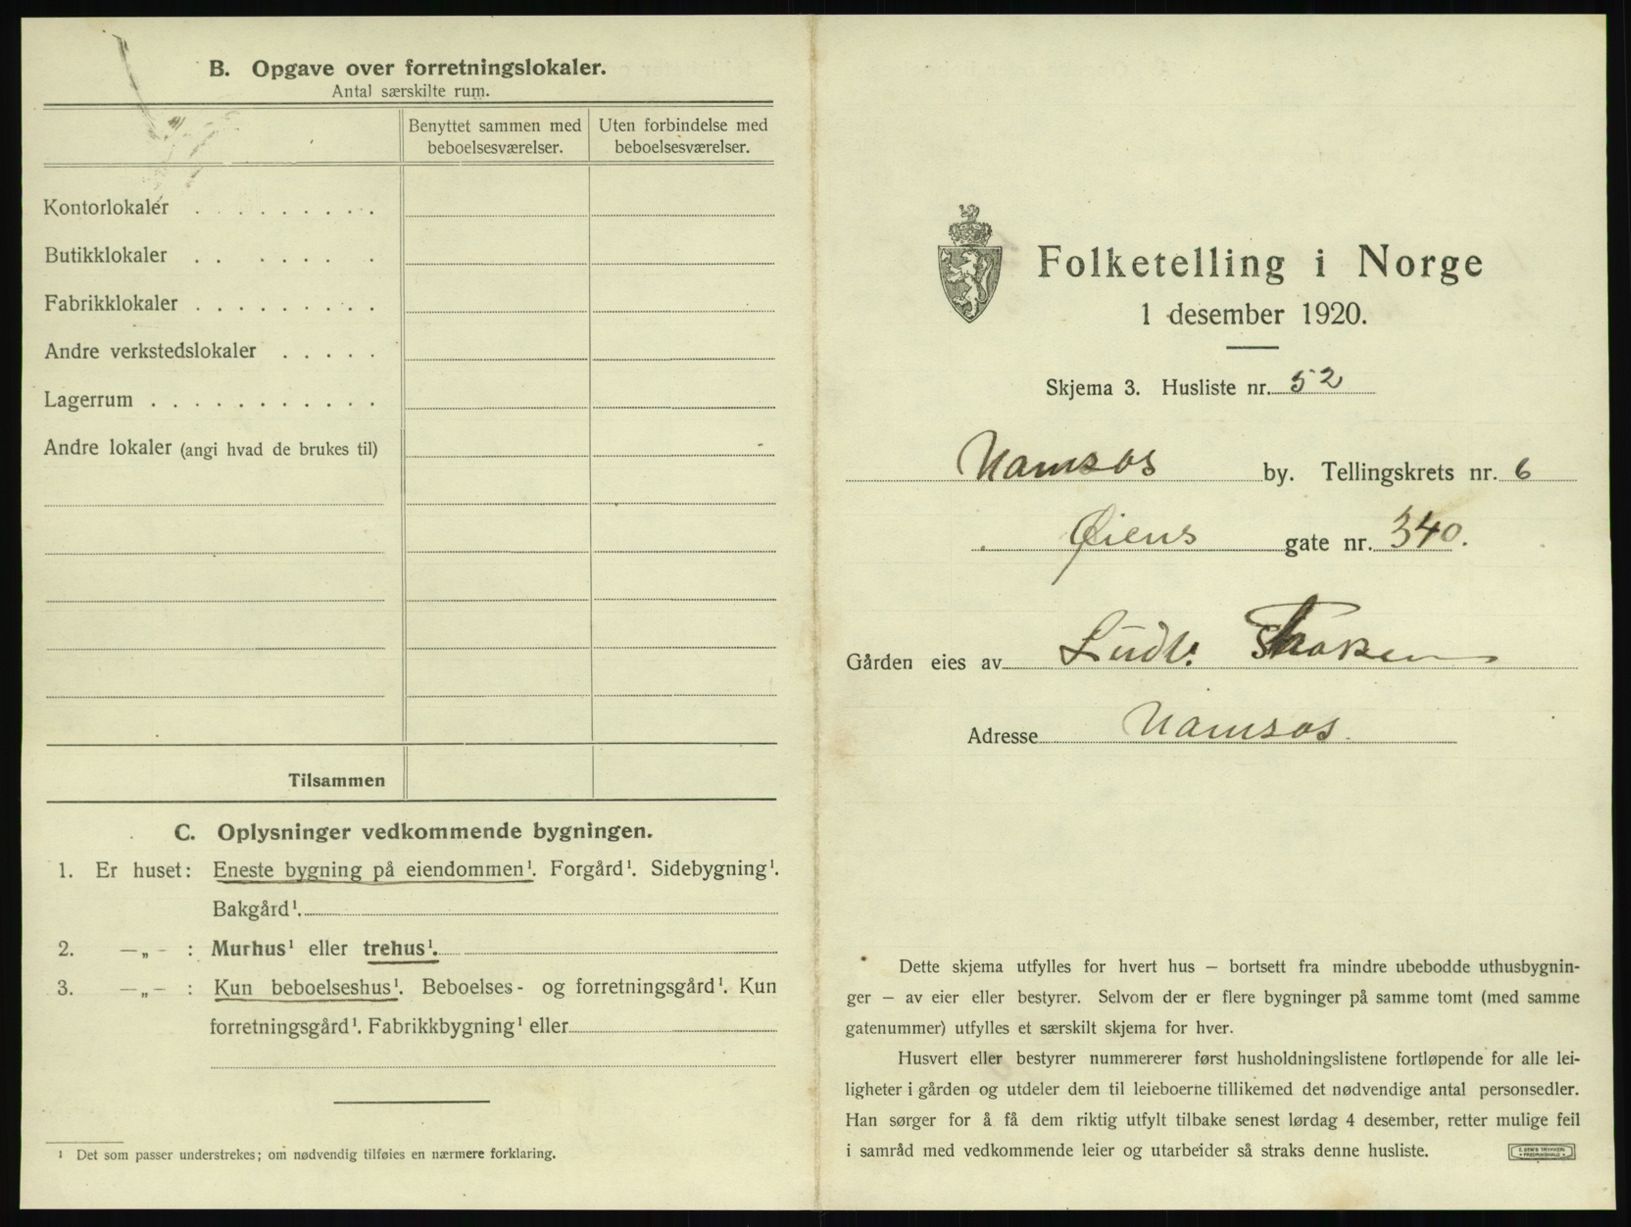 B. Opgave over forretningslokaler.
Antal særskilte rum.
Benyttet sammen med beboelsesværelser.
Uten forbindelse med beboelsesværelser.
Kontorlokaler . . . . . . . . .
Butikklokaler . . . . . . . .
Fabrikklokaler . . . . . . . . .
Andre verkstedslokaler . . . . .
Lagerrum . . . . . . . . . . .
Andre lokaler (angi hvad de brukes til)
Tilsammen
C. Oplysninger vedkommende bygningen.
1. Er huset: Eneste bygning på eiendommen¹. Forgård¹. Sidebygning¹.
Bakgård¹.
2. —„— : Murhus¹ eller trehus¹.
3. —„— : Kun beboelseshus¹. Beboelses- og forretningsgård¹. Kun
forretningsgård¹. Fabrikkbygning¹ eller
¹ Det som passer understrekes; om nødvendig tilføies en nærmere forklaring.
Folketelling i Norge
1 desember 1920.
Skjema 3. Husliste nr. 52
Namsos by. Tellingskrets nr. 6
Øiens gate nr. 340.
Gården eies av Ludv.
Adresse Namsos.
Dette skjema utfylles for hvert hus – bortsett fra mindre ubebodde uthusbygnin-
ger – av eier eller bestyrer. Selvom der er flere bygninger på samme tomt (med samme
gatenummer) utfylles et særskilt skjema for hver.
Husvert eller bestyrer nummererer først husholdningslistene fortløpende for alle lei-
ligheter i gården og utdeler dem til leieboerne tillikemed det nødvendige antal personsedler.
Han sørger for å få dem riktig utfylt tilbake senest lørdag 4 desember, retter mulige feil
i samråd med vedkommende leier og utarbeider så straks denne husliste.